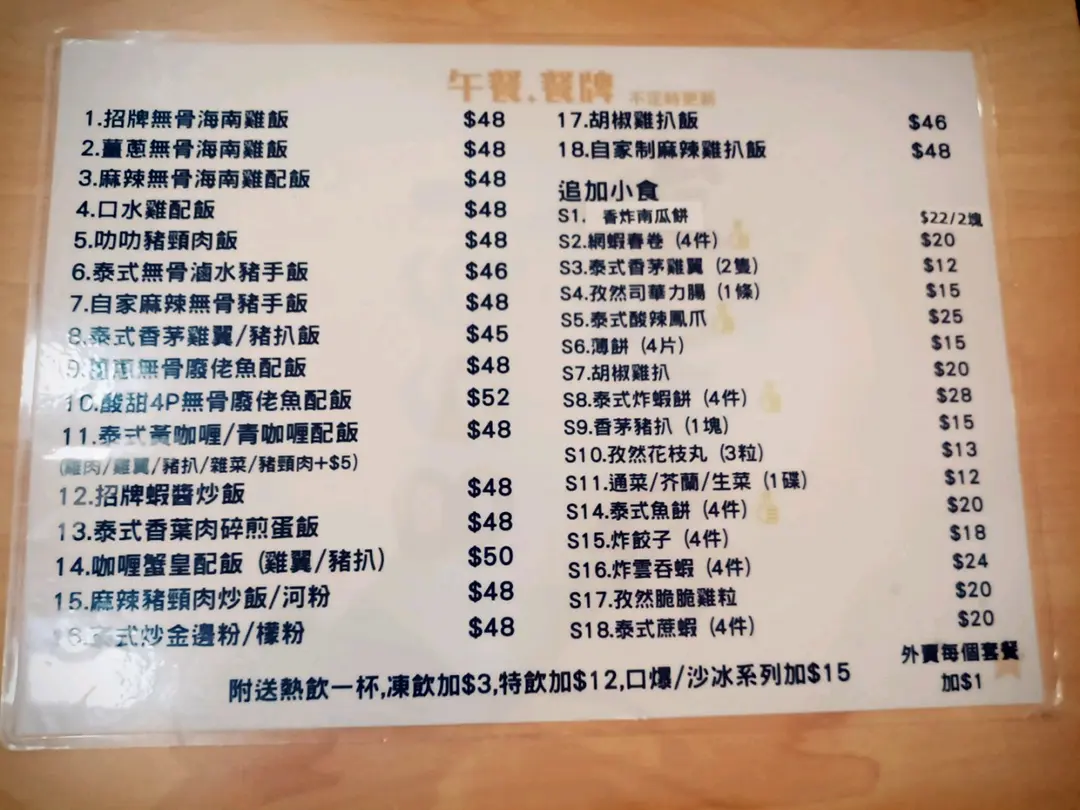 午餐.餐牌 不定時更新
1.招牌無骨海南雞飯 $48
2.薑蔥無骨海南雞飯 $48
3.麻辣無骨海南雞配飯 $48
4.口水雞配飯 $48
5.叻叻豬頸肉飯 $48
6.泰式無骨滷水豬手飯 $46
7.自家麻辣無骨豬手飯 $48
8.泰式香茅雞翼/豬扒飯 $45
9.蔥無骨廢佬魚配飯 $48
10.酸甜4P無骨廢佬魚配飯 $52
11.泰式黃咖喱/青咖喱配飯 $48
(雞肉/雞翼/豬扒/雜菜/豬頸肉+$5)
12.招牌蝦醬炒飯 $48
13.泰式香葉肉碎煎蛋飯 $48
14.咖喱蟹皇配飯 (雞翼/豬扒) $50
15.麻辣豬頸肉炒飯/河粉 $48
16.泰式炒金邊粉/檬粉 $48
17.胡椒雞扒飯 $46
18.自家制麻辣雞扒飯 $48
追加小食
S1. 香炸南瓜餅 $22/2塊
S2.網蝦春卷 (4件) $20
S3.泰式香茅雞翼 (2隻) $12
S4.孜然司華力腸 (1條) $15
S5.泰式酸辣鳳爪 $25
S6.薄餅 (4片) $15
S7.胡椒雞扒 $20
S8.泰式炸蝦餅 (4件) $28
S9.香茅豬扒 (1塊) $15
S10.孜然花枝丸 (3粒) $13
S11.通菜/芥蘭/生菜 (1碟) $12
S14.泰式魚餅 (4件) $20
S15.炸餃子 (4件) $18
S16.炸雲吞蝦 (4件) $24
S17.孜然脆脆雞粒 $20
S18.泰式蔗蝦 (4件) $20
外賣每個套餐
加$1
附送熱飲一杯,凍飲加$3,特飲加$12,口爆/沙冰系列加$15